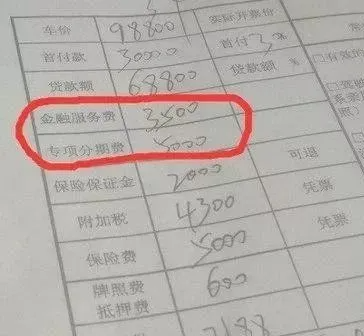 车价 98800 实际开票价
首付款 30000 首付 3 %
贷款额 68800 贷款额 % □有效的
金融服务费 3500
专项分期费 5000
保险保证金 2000 可退
附加税 4300 凭票
保险费 5000 凭票
牌照费 600
抵押费